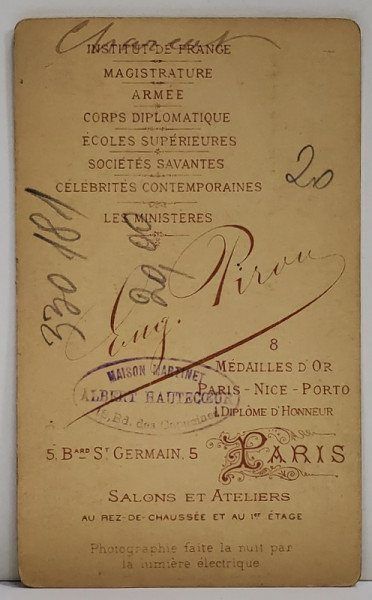 INSTITUT DE FRANCE
MAGISTRATURE
ARMÉE
CORPS DIPLOMATIQUE
ÉCOLES SUPÉRIEURES
SOCIÉTÉS SAVANTES
CÉLÉBRITÉS CONTEMPORAINES
LES MINISTÈRES
20
330181
Eug. Pirou
8
MÉDAILLES D'OR
PARIS - NICE - PORTO
1 DIPLÔME D'HONNEUR
MAISON MARTINET
ALBERT HAUTECŒUR
Bd. des Capucines
5, BARD ST GERMAIN, 5
PARIS
SALONS ET ATELIERS
AU REZ-DE-CHAUSSÉE ET AU 1ER ÉTAGE
Photographie faite la nuit par
la lumière électrique